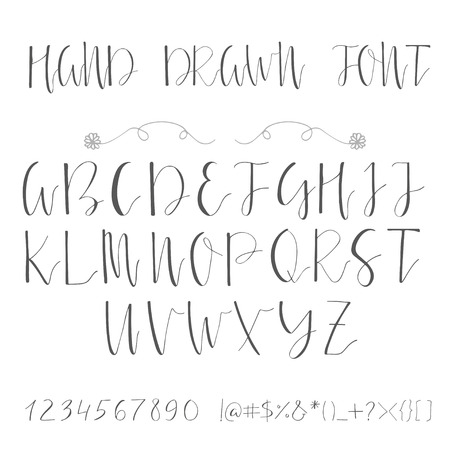 HAND DRAWN FONT
ABCDEFGHIJ
KLMNOPQRST
UVWXYZ
1234567890 !@#$%&*()_+?><{}[]